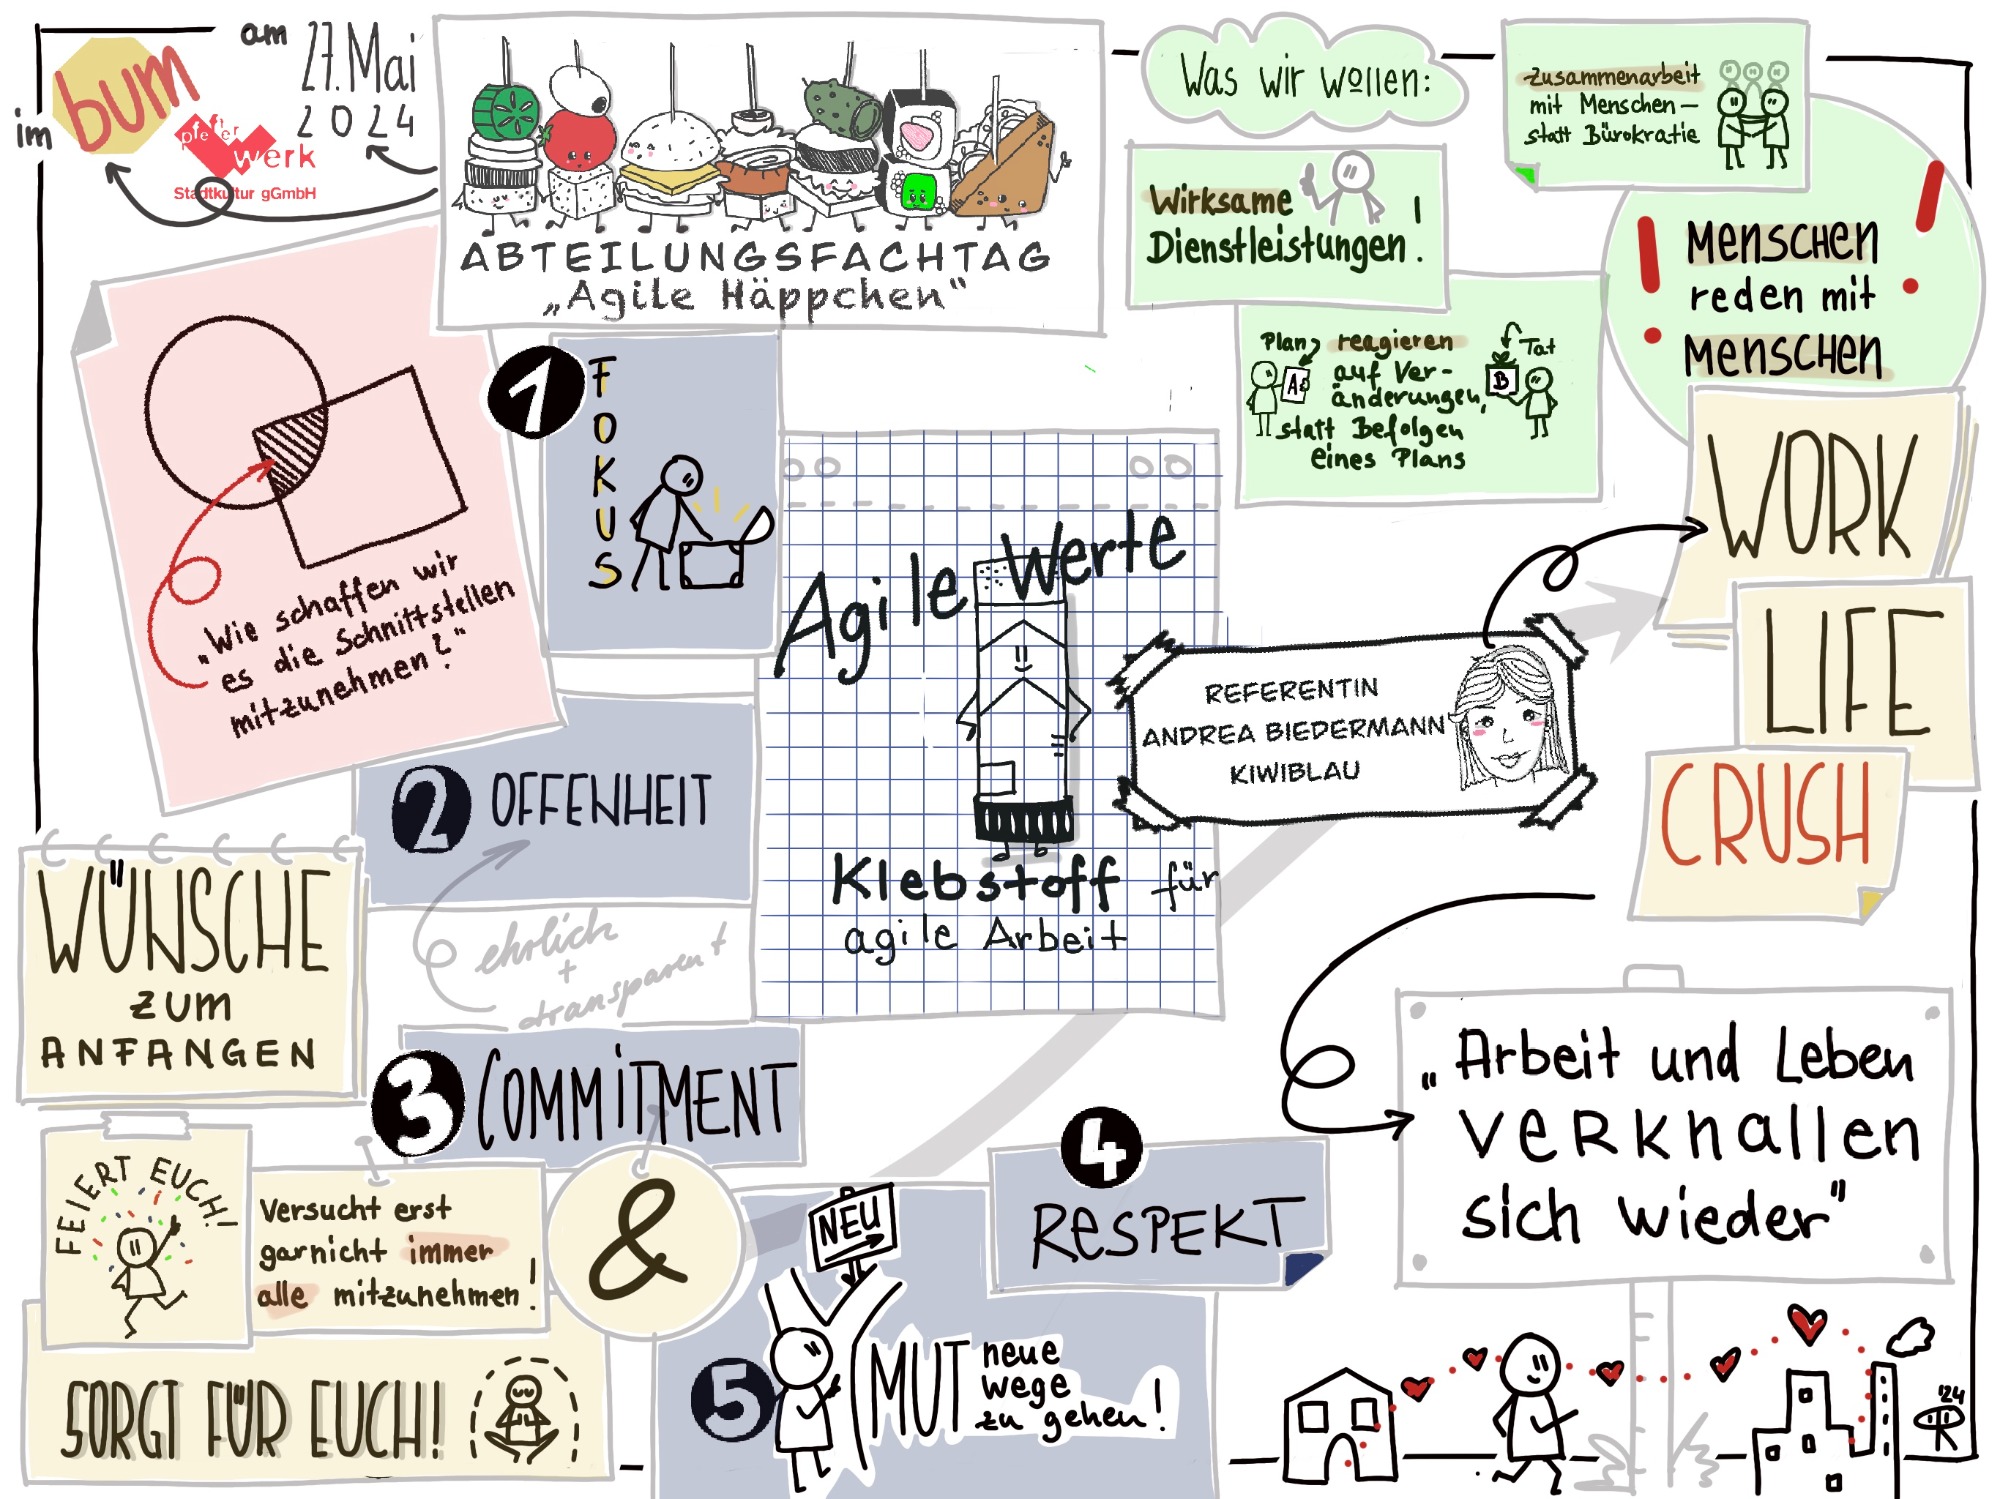 im
bum
pfeffer
werk
Stadtkultur gGmbH
am
27.Mai
2024
ABTEILUNGSFACHTAG
„Agile Häppchen“
Was wir wollen:
Zusammenarbeit
mit Menschen –
statt Bürokratie
Wirksame
Dienstleistungen!
Plan
A
reagieren
auf Ver-
änderungen,
statt Befolgen
eines Plans
Tat
B
Menschen
reden mit
Menschen
„Wie schaffen wir
es die Schnittstellen
mitzunehmen?“
1
FOKUS
Agile Werte
Klebstoff für
agile Arbeit
REFERENTIN
ANDREA BIEDERMANN
KIWIBLAU
WORK
LIFE
CRUSH
2 OFFENHEIT
ehrlich
+
transparent
3 COMMITMENT
4
RESPEKT
5
NEU
MUT neue
wege
zu gehen!
WÜNSCHE
zum
ANFANGEN
FEIERT EUCH!
Versucht erst
garnicht immer
alle mitzunehmen!
&
SORGT FÜR EUCH!
„Arbeit und Leben
verknallen
sich wieder“
'24